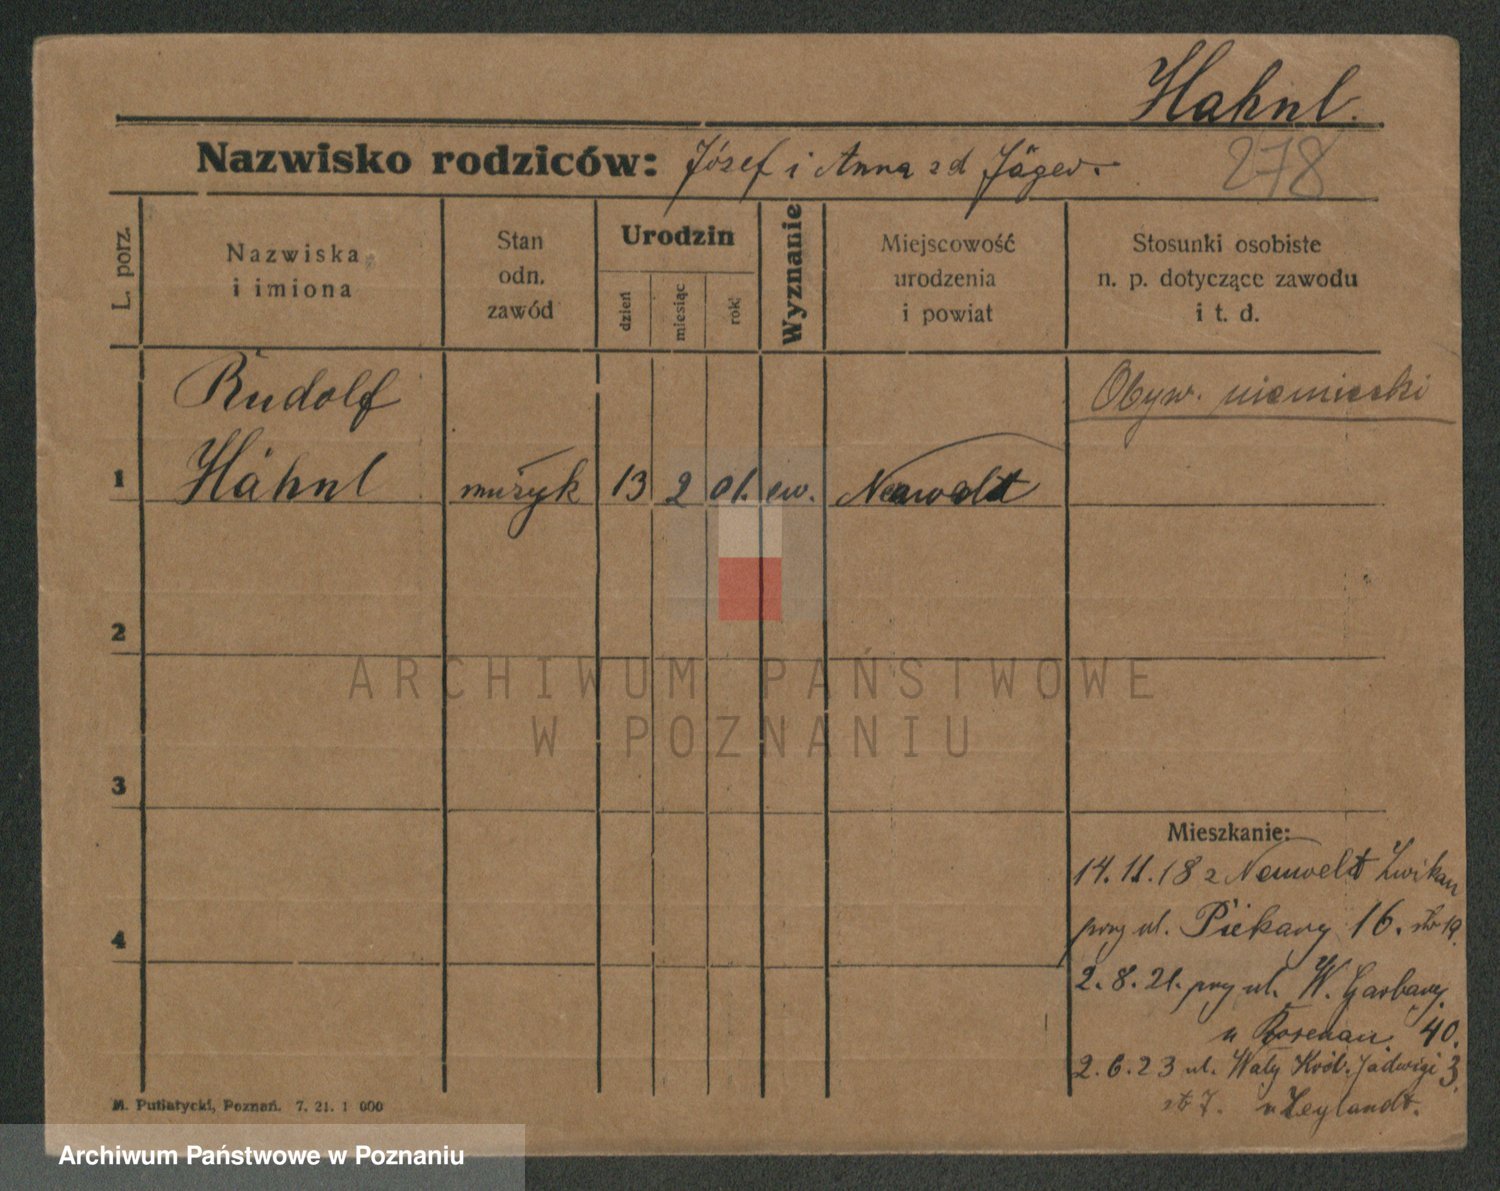 Hahnl.
Nazwisko rodziców: Józef i Anna zd Jäger.
278
L. porz.
Nazwiska i imiona
Stan odn. zawód
Urodzin
dzień
miesiąc
rok
Wyznanie
Miejscowość urodzenia i powiat
Stosunki osobiste n. p. dotyczące zawodu i t. d.
Rudolf
Obyw. niemiecki
1 Hähnl muzyk 13 2 01. ew. Neuwelt
2
3
4
Mieszkanie:
14.11.18 z Neuwelt Zwikau
przy ul. Piekary 16.
2.8.21. przy ul. W. Garbary
u Rosenau. 40.
2.6.23 ul. Wały Król. Jadwigi 3.
u Leylandt.
M. Putiatycki, Poznań. 7. 21. 1 000
ARCHIWUM PAŃSTWOWE
W POZNANIU
Archiwum Państwowe w Poznaniu